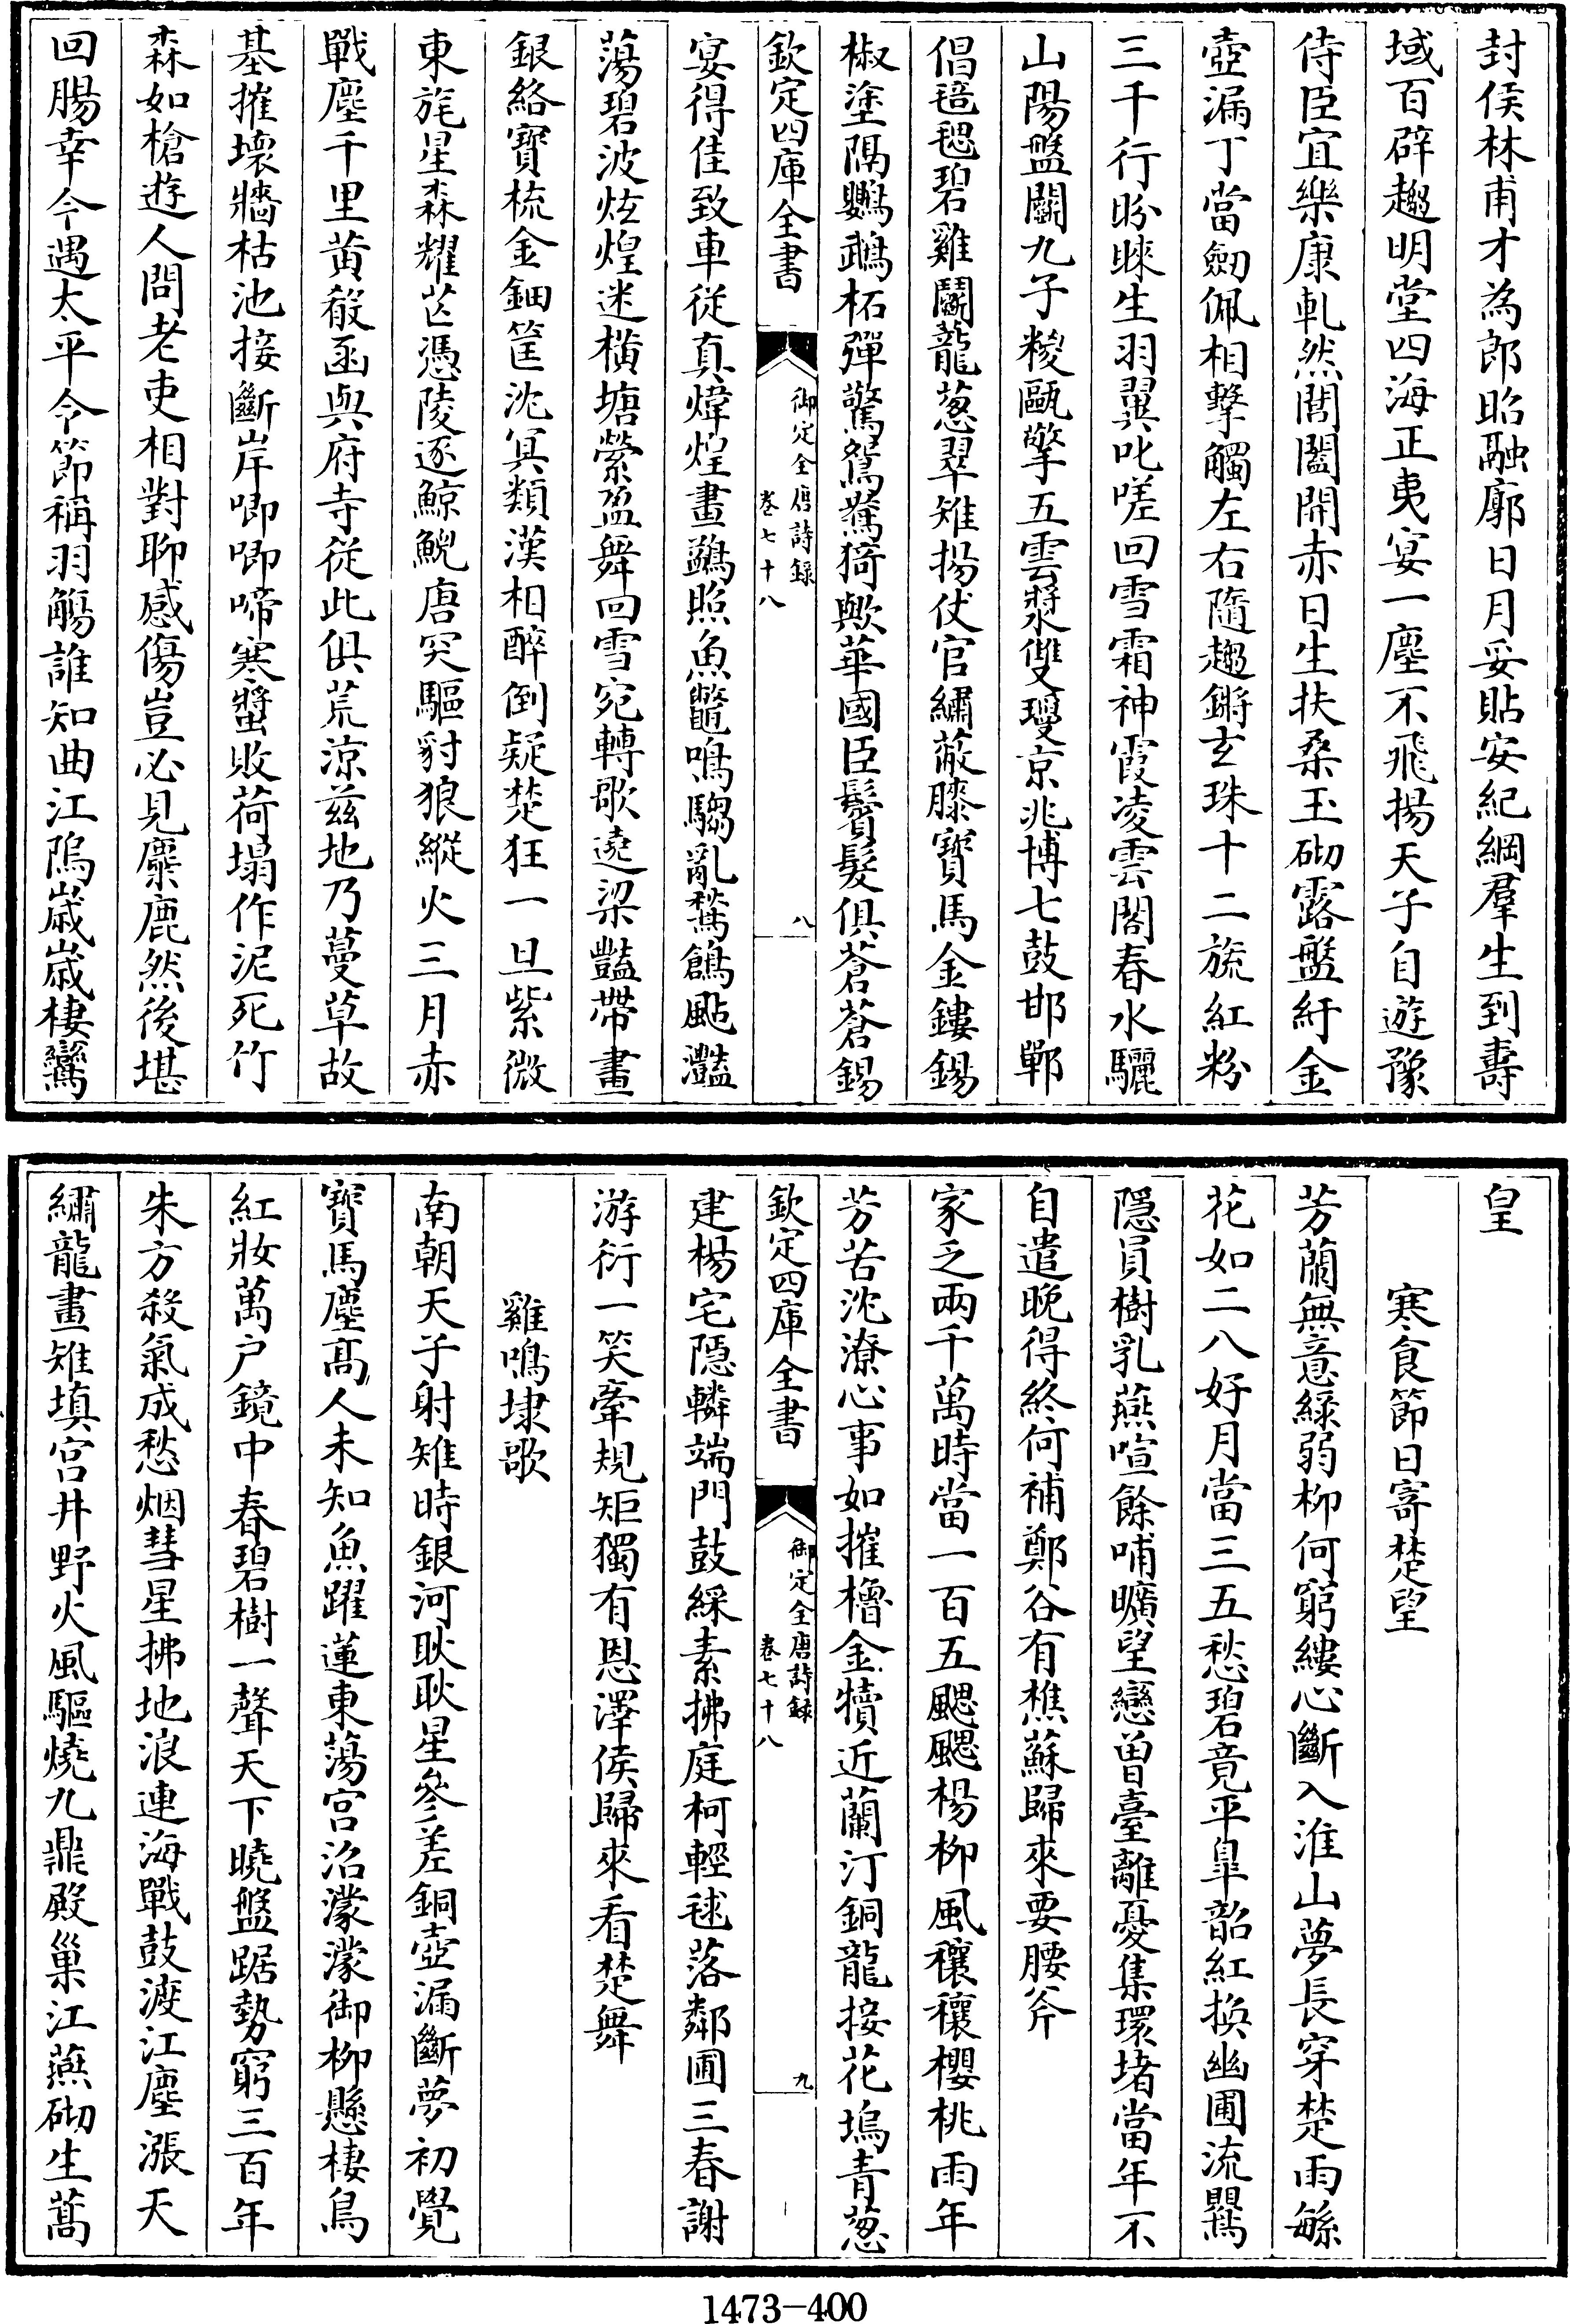 封侯林甫才為郎昭融廓日月妥貼安紀綱羣生到壽
域百辟趨明堂四海正夷宴一塵不飛揚天子自遊豫
侍臣宜樂康軋然閶闔開赤日生扶桑玉砌露盤紆金
壺漏丁當劒佩相擊觸左右隨趨鏘玄珠十二旒紅粉
三千行盼睞生羽翼叱嗟回雪霜神霞凌雲閣春水驪
山陽盤鬭九子糉甌擎五雲漿雙瓊京兆博七鼓邯鄲
倡毰毸碧雞鬭蘢葱翠雉揚伏官繡蔽膝寶馬金鏤錫
椒塗隔鸚鵡柘彈驚鴛鴦猗歟華國臣鬢髮俱蒼蒼錫
欽定四庫全書
御定全唐詩録
卷七十八
八
宴得佳致車從真煒煌畫鷁照魚鼈鳴騶亂鶖鶬颭灩
蕩碧波炫煌迷橫塘縈盈舞回雪宛轉歌遶梁豔帶畫
銀絡寶梳金鈿筐沈冥類漢相醉倒疑楚狂一旦紫微
東旄星森耀芒憑陵逐鯨鯢唐突驅豺狼縱火三月赤
戰塵千里黃殽函與府寺從此俱荒涼兹地乃蔓草故
基摧壞牆枯池接斷岸唧唧啼寒螿敗荷塌作泥死竹
森如槍遊人問老吏相對聊感傷豈必見麋鹿然後堪
回腸幸今遇太平令節稱羽觴誰知曲江隖歲歲棲鸞
皇
寒食節日寄楚望
芳蘭無意綠弱柳何窮縷心斷入淮山夢長穿楚雨繁
花如二八好月當三五愁碧竟平臯韶紅換幽圃流鸎
隱員樹乳燕喧餘哺曠望戀曾臺離憂集環堵當年不
自遣晚得終何補鄭谷有樵蘇歸來要腰斧
家乏兩千萬時當一百五颸颸楊柳風穰穰櫻桃雨年
芳苦沈潦心事如摧櫓金犢近蘭汀銅龍接花塢青葱
欽定四庫全書
御定全唐詩録
卷七十八
九
建楊宅隱轔端門鼓綵素拂庭柯輕毬落鄰圃三春謝
游衍一笑牽規矩獨有恩澤侯歸來看楚舞
雞鳴埭歌
南朝天子射雉時銀河耿耿星參差銅壺漏斷夢初覺
寶馬塵髙人未知魚躍蓮東蕩宮沼濛濛御柳懸棲鳥
紅妝萬户鏡中春碧樹一聲天下曉盤踞勢窮三百年
朱方殺氣成愁烟彗星拂地浪連海戰鼓渡江塵漲天
繡龍畫雉填宮井野火風驅燒九鼎殿巢江燕砌生蒿
1473-400